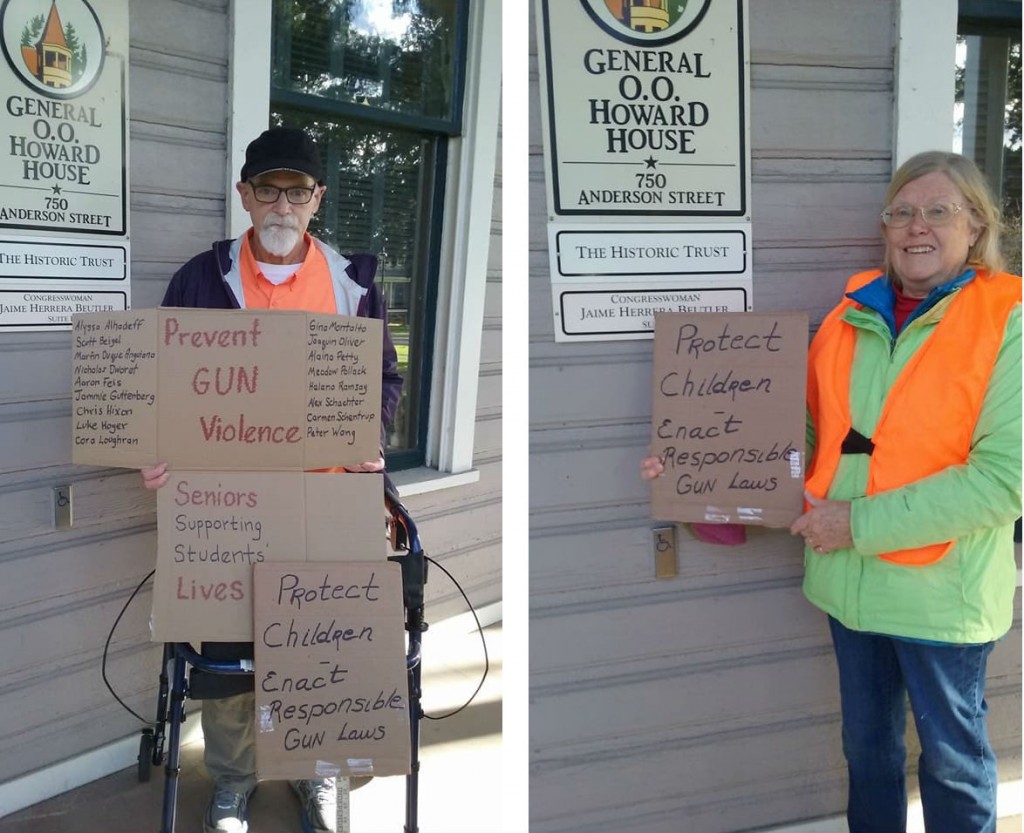 GENERAL
O.O.
HOWARD
HOUSE
750
ANDERSON STREET
THE HISTORIC TRUST
CONGRESSWOMAN
JAIME HERRERA BEUTLER
SUITE
Alyssa Alhadeff
Scott Beigel
Martin Duque Anguiano
Nicholas Dworet
Aaron Feis
Jammie Guttenberg
Chris Hixon
Luke Hoyer
Cora Loughran
Prevent
GUN
Violence
Gina Montalto
Joaquin Oliver
Alaina Petty
Meadow Pollack
Helena Ramsay
Alex Schachter
Carmen Schentrup
Peter Wang
Seniors
Supporting
Students'
Lives
Protect
Children
Enact
Responsible
Gun Laws
GENERAL
O.O.
HOWARD
HOUSE
750
ANDERSON STREET
THE HISTORIC TRUST
CONGRESSWOMAN
JAIME HERRERA BEUTLER
Protect
Children
Enact
Responsible
Gun Laws